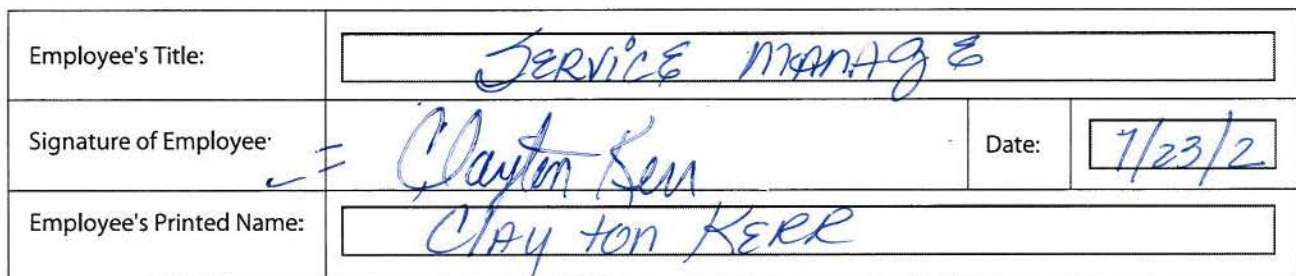 Employee's Title: SERVICE MANAGE
Signature of Employee: Clayton Kerr Date: 7/23/2
Employee's Printed Name: CLAYTON KERR